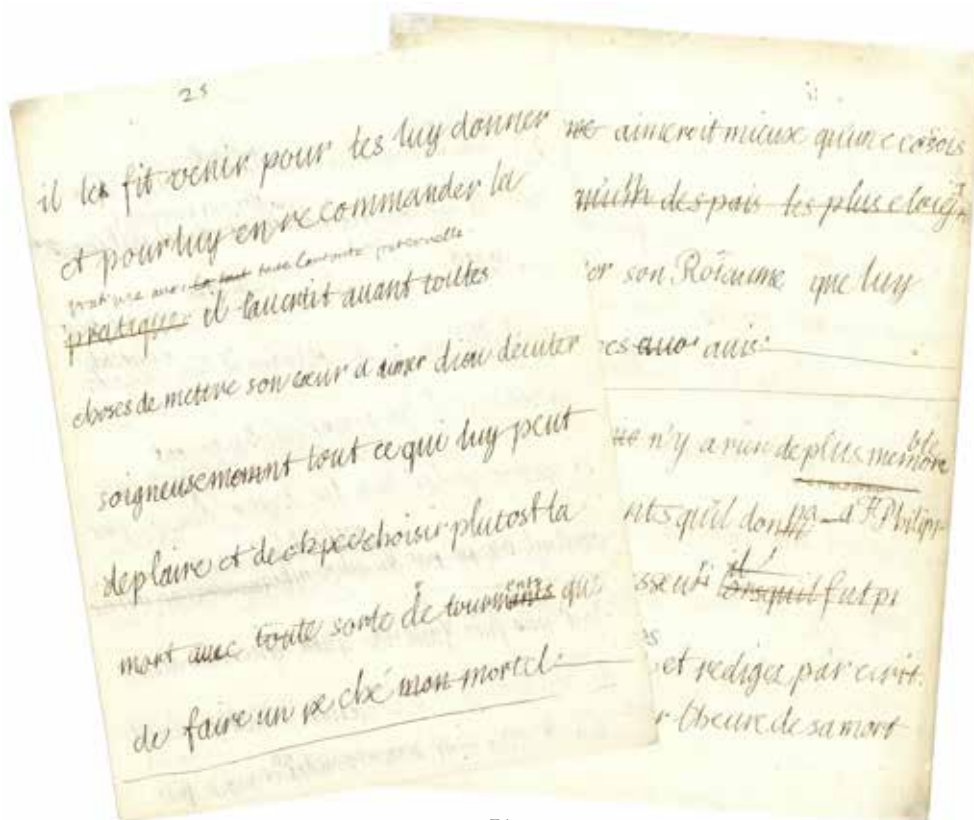 25
il les fit venir pour les luy donner
et pour luy en recommander la
pratique avec toute paternelle
pratique il lavertit avant toutes
choses de mettre son cœur a aimer dieu déviter
soigneusement tout ce qui luy peut
deplaire et de choisir plutost la
mort avec toute sorte de tourments que
de faire un peché mortel
aimeroit mieux qu'un ecosois
des pais les plus eloign
son Roiaume que luy
avis
n'y a rien de plus memorable
quil donna a Philipp
il fut
et redigea par ecrit
l'heure de sa mort